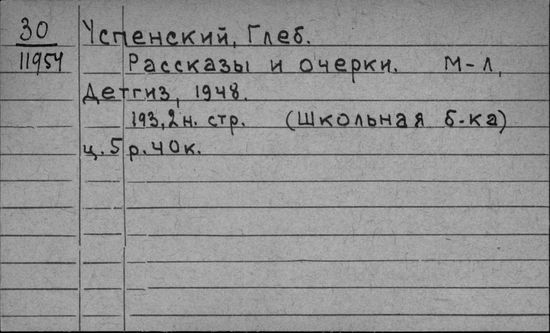 30
11954
Успенский, Глеб.
Рассказы и очерки. М-Л,
Детгиз, 1948.
193, 2н. стр. (Школьная б-ка)
ц. 5 р. 40к.